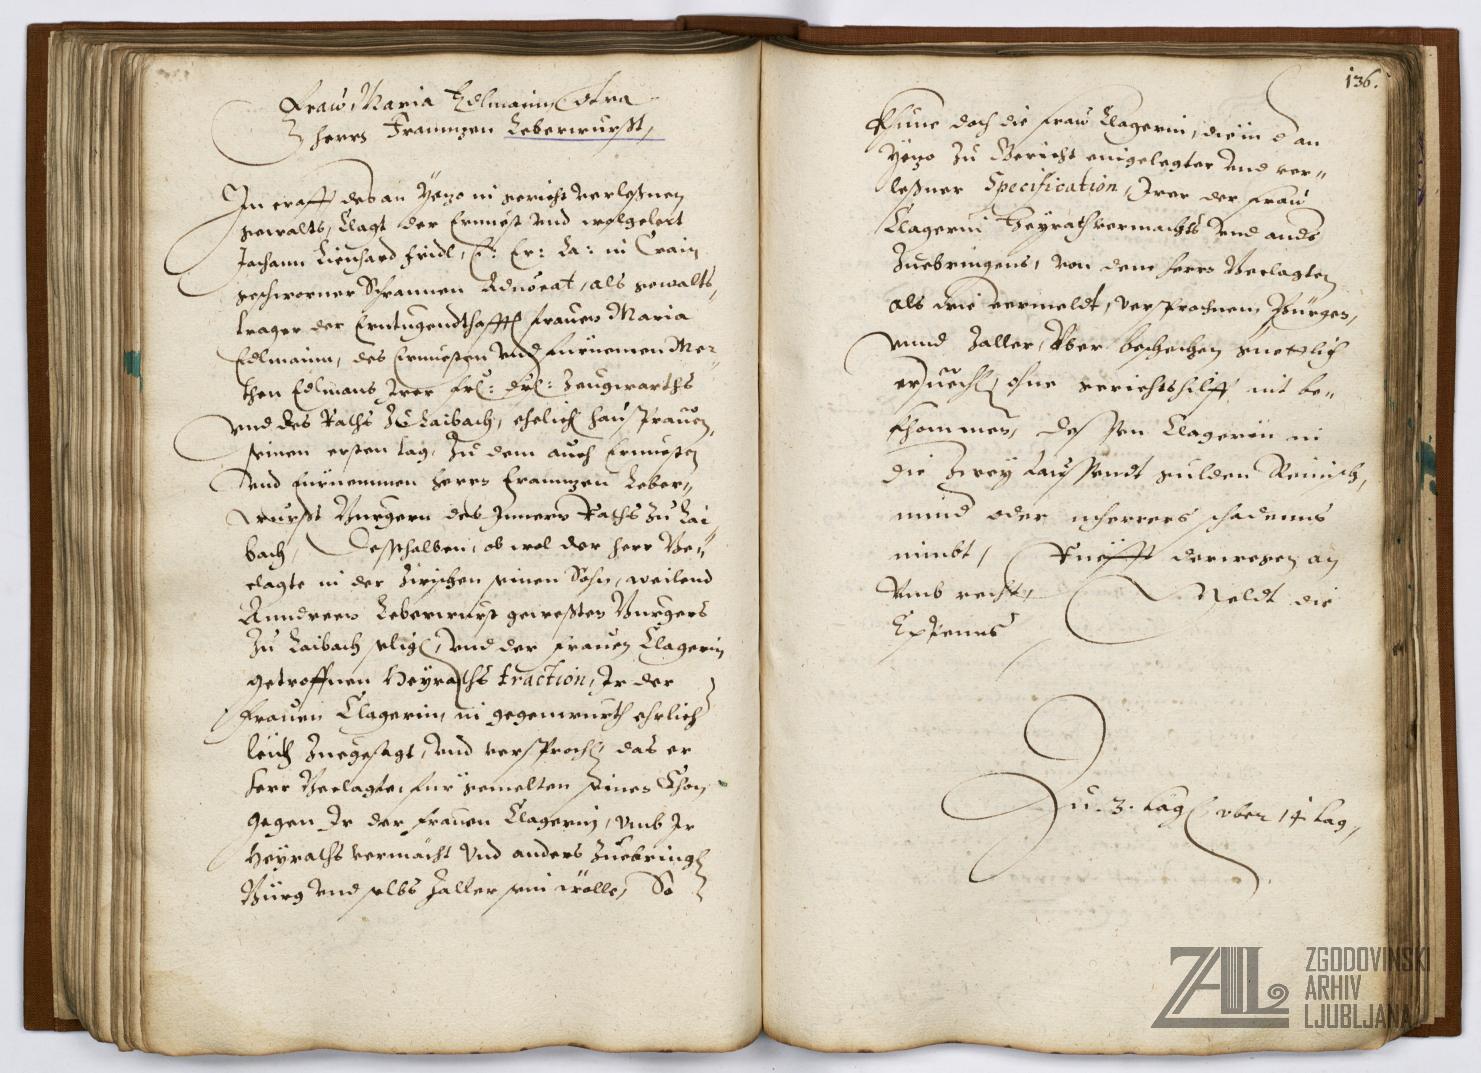 Fraw Maria Edlmanin Contra
Herrn Franntzen Leberwurst,
In crafft des an Yezo in gericht verleßnen
gewalts, Clagt der Ernuest vnd wolgelert
Johann Lienhard Fridl, E: Er: La: in Crain
geschworner Schrannen Aduocat, als gewalts
trager der Erntugendthafften Frauen Maria
Edlmanin, des Ernuesten vnd Fürnemen Me-
then Edlmans Irer Frl: Drl: Zeugwarths
vnd des Raths Zu Laibach, ehelichen haus frauen,
seinen ersten tag, Zu dem auch Ernuesten
vnd Fürnemmen Herrn Franntzen Leber-
wurst Burgern des Innern Raths Zu Lai
bach, Desshalben, ob wol der Herr Be-
clagte in der Zwischen seinen Sohn, weilend
Anndreen Leberwurst gewesten Burgers
Zu Laibach seligen, vnd der Frauen Clagerin
getroffnen Heyraths traction, Ir der
Frauen Clagerin, in gegenwurth ehrlicher
leüth Zuegesagt, vnd versprochen das er
Herr Beclagte, für gemelten seinen Sohn
gegen Ir der Frauen Clagerin, vmb Ir
Heyraths vermächt vnd anders Zuebringen
Bürg vnd selbs Zaller sein wölle, So
136.
Khüne doch die Fraw Clagerin, die in d an
Yezo Zu Gericht eingelegter vnd ver-
leßner Specification, Irer der Frau
Clagerin Heyrathsvermachts vnd anders
Zuebringens, von dem Herrn Beclagten
als wie vermeldt, versprochnem Bürgen,
vnnd Zaller, Vber beschechen guetlich
ersuechen, ohne gerichtshilff nit be-
khommen, Des sen Clagerin in
die Zwey taussendt gulden Reinisch,
mind oder meherrers schadenns
nimbt, Rüefft derwegen an
Vmb recht, Meldt die
Expenns
Zu 3. tagen vber 14 tag,
ZAL
ZGODOVINSKI
ARHIV
LJUBLJANA